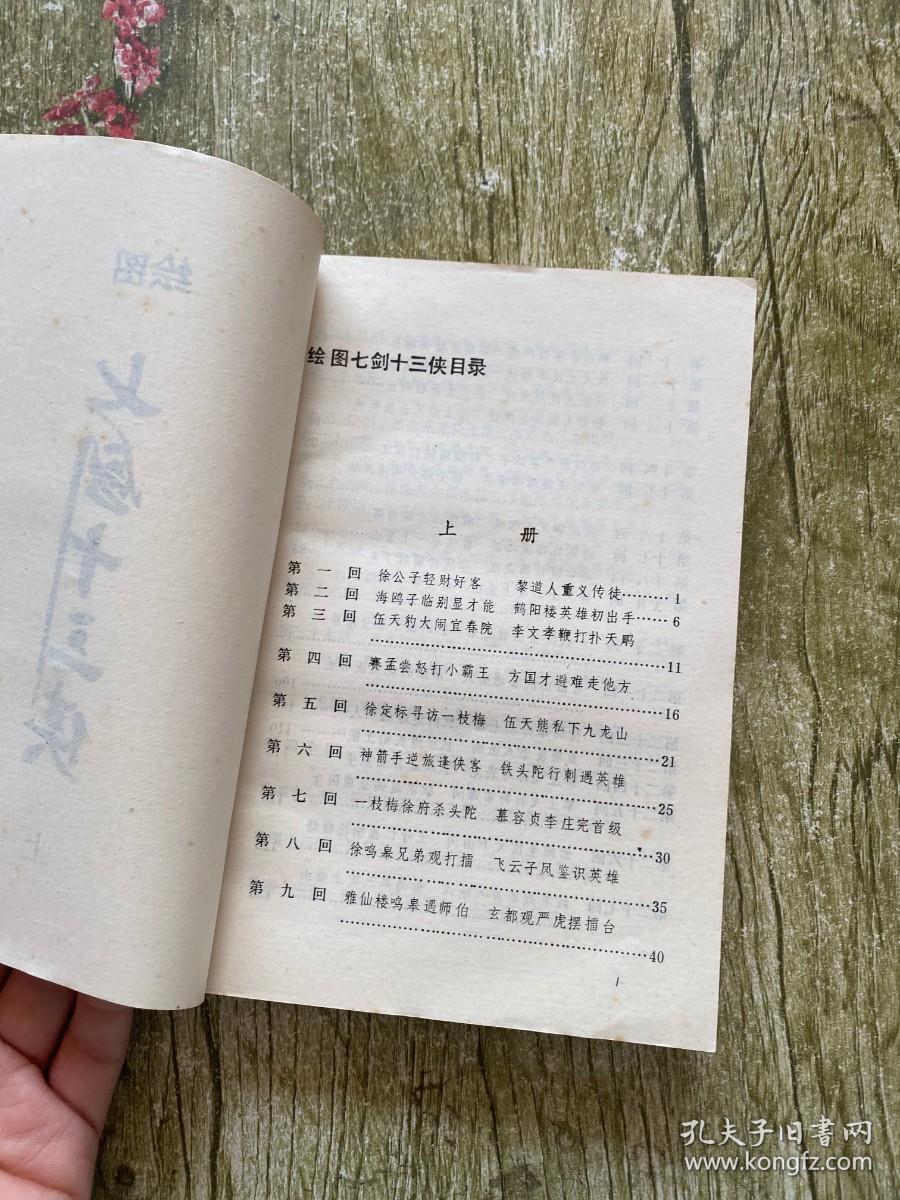 绘图
七剑十三侠
上
绘图七剑十三侠目录
上 册
第一回 徐公子轻财好客 黎道人重义传徒………1
第二回 海鸥子临别显才能 鹤阳楼英雄初出手……6
第三回 伍天豹大闹宜春院 李文孝鞭打扑天鹏
……………………………………………………11
第四回 赛孟尝怒打小霸王 方国才避难走他方
……………………………………………………16
第五回 徐定标寻访一枝梅 伍天熊私下九龙山
……………………………………………………21
第六回 神箭手逆旅逢侠客 铁头陀行刺遇英雄
……………………………………………………25
第七回 一枝梅徐府杀头陀 慕容贞李庄完首级
……………………………………………………30
第八回 徐鸣皋兄弟观打擂 飞云子风鉴识英雄
……………………………………………………35
第九回 雅仙楼鸣皋遇师伯 玄都观严虎摆擂台
……………………………………………………40
1
孔夫子旧书网
www.kongfz.com